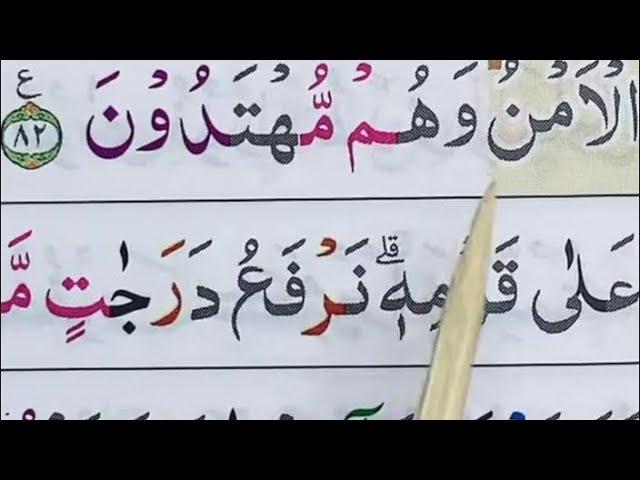 الْاَمْنُ وَهُمْ مُّهْتَدُوْنَ ۝۸۲ ع
عَلٰى قَوْمِهٖ ؕۗ نَرْفَعُ دَرَجٰتٍ مَّ